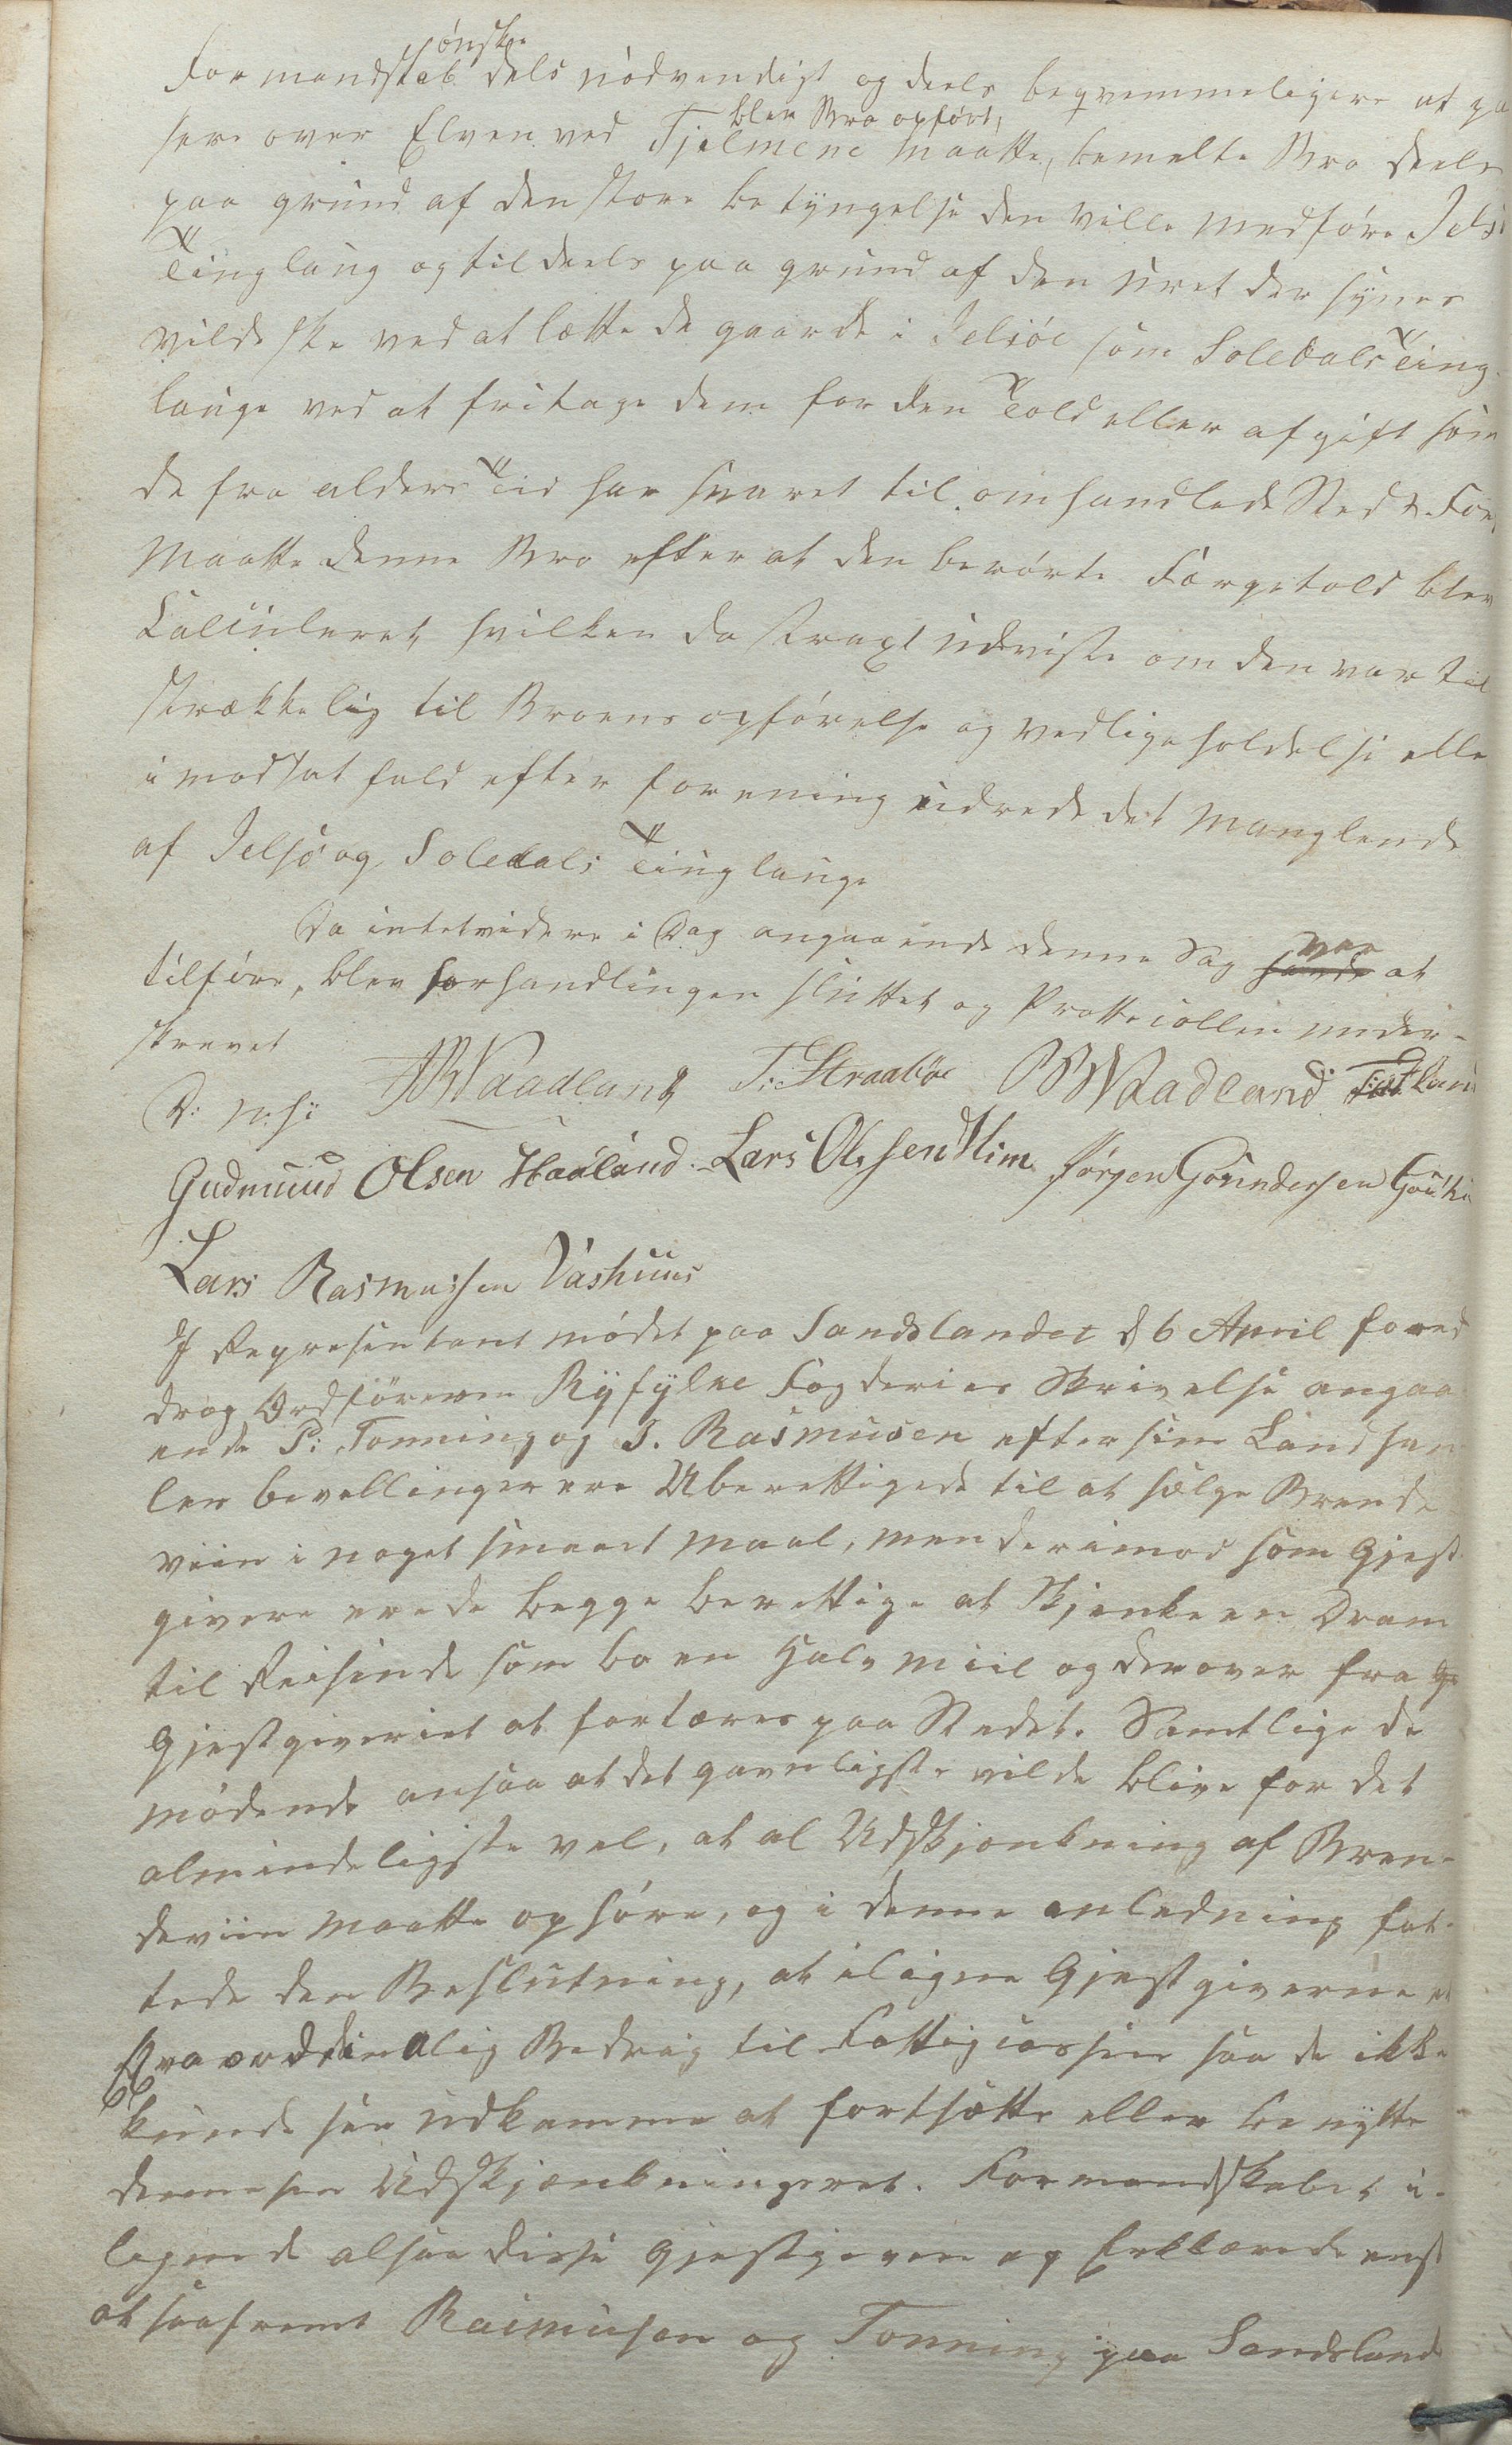 ønsker
Formandskab dels nødvendigt og deels beqvemmeligere at pa
blev Bro opført,
sere over Elven ved Tjelmene maatte, bemelte Bro deels
paa grund af den store betyngelse den ville medføre Jelsø
Tinglaug og til deels paa grund af den uret der synes
vilde ske ved at lette de gaarde i Jelsøe som Soledals Ting
lauge ved at fritage dem for den Told eller afgift som
de fra alders Tid har svaret til omhandlede Sted
Maatte denne Bro efter at den berørte Færgetold blev
Calculeret, hvilken da straxt udviste om den var til
strækkelig til Broens opførelse og vedligeholdelse elle
i modsat fald efter forening udrede det manglende
af Jelsø og Soledals Tinglauge
Da intet videre i Dag angaaende denne Sag havde var at
tilføre, blev forhandlingen sluttet og Prottecollen under-
skrevet
Waadland T: Straabøe Waadland
Gudmund Olsen Haaland. Lars Olssen Him Jørgen Gundersen
Lars Rasmussen Vashuus
I Representant mødet paa Sandslandet d 6 April fored
drog Ordføreren Ryfylke Fogderies Skrivelse angaa
ende P: Tonning og J. Rasmusen efter sine Landhan
ler bevillinger ere Uberettigede til at sælge Brende
viin i noget smaat maal, men derimod som Gjest
givere ere de begge berettige at Skjenke en Dram
til Reisende som bo en Halv miil og derover fra
Gjestgiveriet at fortæres paa Stedet. Samtlige de
mødende ansaa at det gavnligste vilde blive for det
almindeligste vel, at al Udskjænkning af Bren-
deviin maatte ophøre, og i denne anledning fat-
tede den Beslutning, at iligne Gjestgiverne
Extraorddinalig Bedrag til Fattigcassen saa de ikke
kunde see udkomme at fortsætte eller benytte
denne sin Udskjænkningsret. Formandskabet i-
lignede altsaa disse Gjestgivere og Erklærede
at saafremt Rasmusen og Tonning paa Sandsland